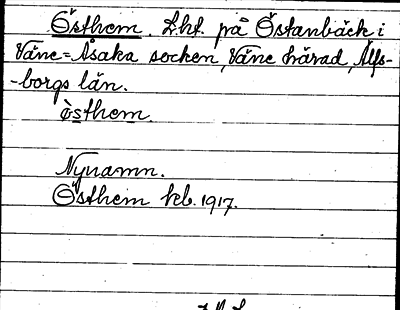 Östhem. Lht. på Östanbäck i
Väne-Åsaka socken, Väne härad, Älfs-
-borgs län.
östhem.
Nynamn.
Östhem kb. 1917.